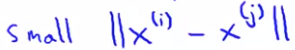 small ||x^(i) - x^(j)||